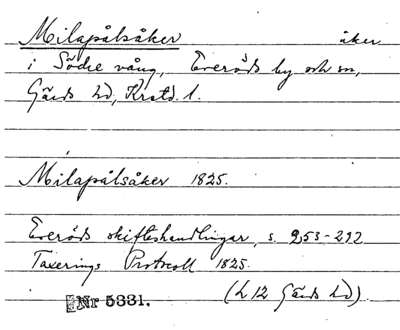 Milapålsåker åker
i Södre vång, Everöds by och sn,
Gärds hd, Krstd. l.
Milapålsåker 1825.
Everöds skifteshandlingar, s. 253-292
Taxerings Protocoll 1825.
(L 12 Gärds hd)
Nr 5331.